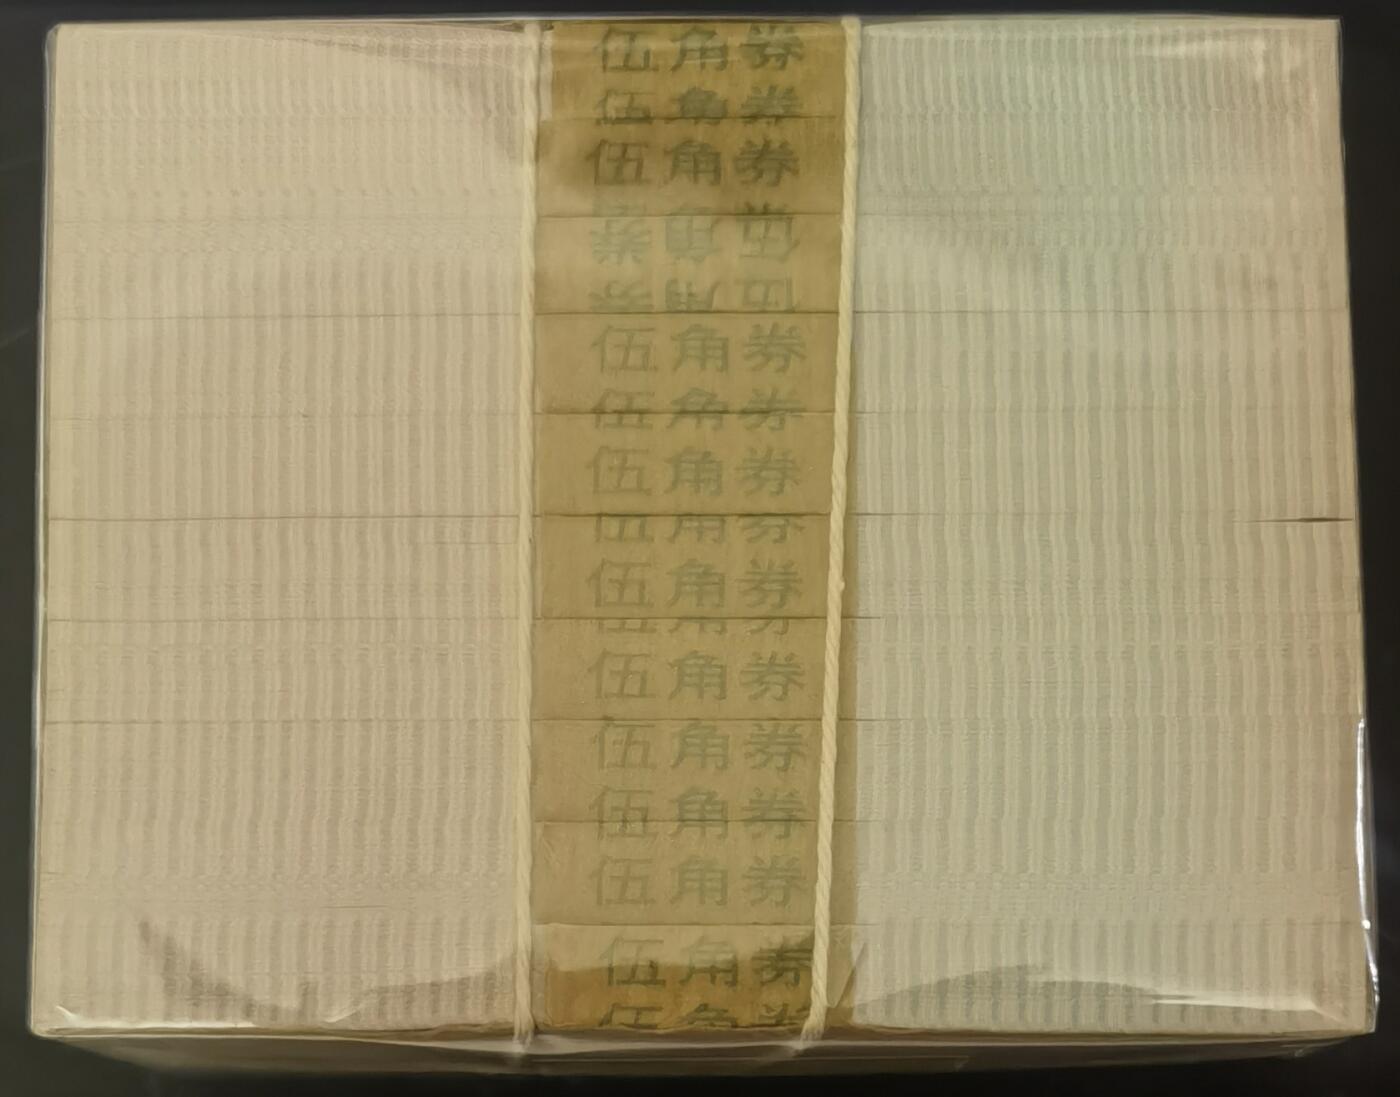 伍角券
伍角券
伍角券
伍角券
伍角券
伍角券
伍角券
伍角券
伍角券
伍角券
伍角券
伍角券
伍角券
伍角券
伍角券
伍角券
伍角券